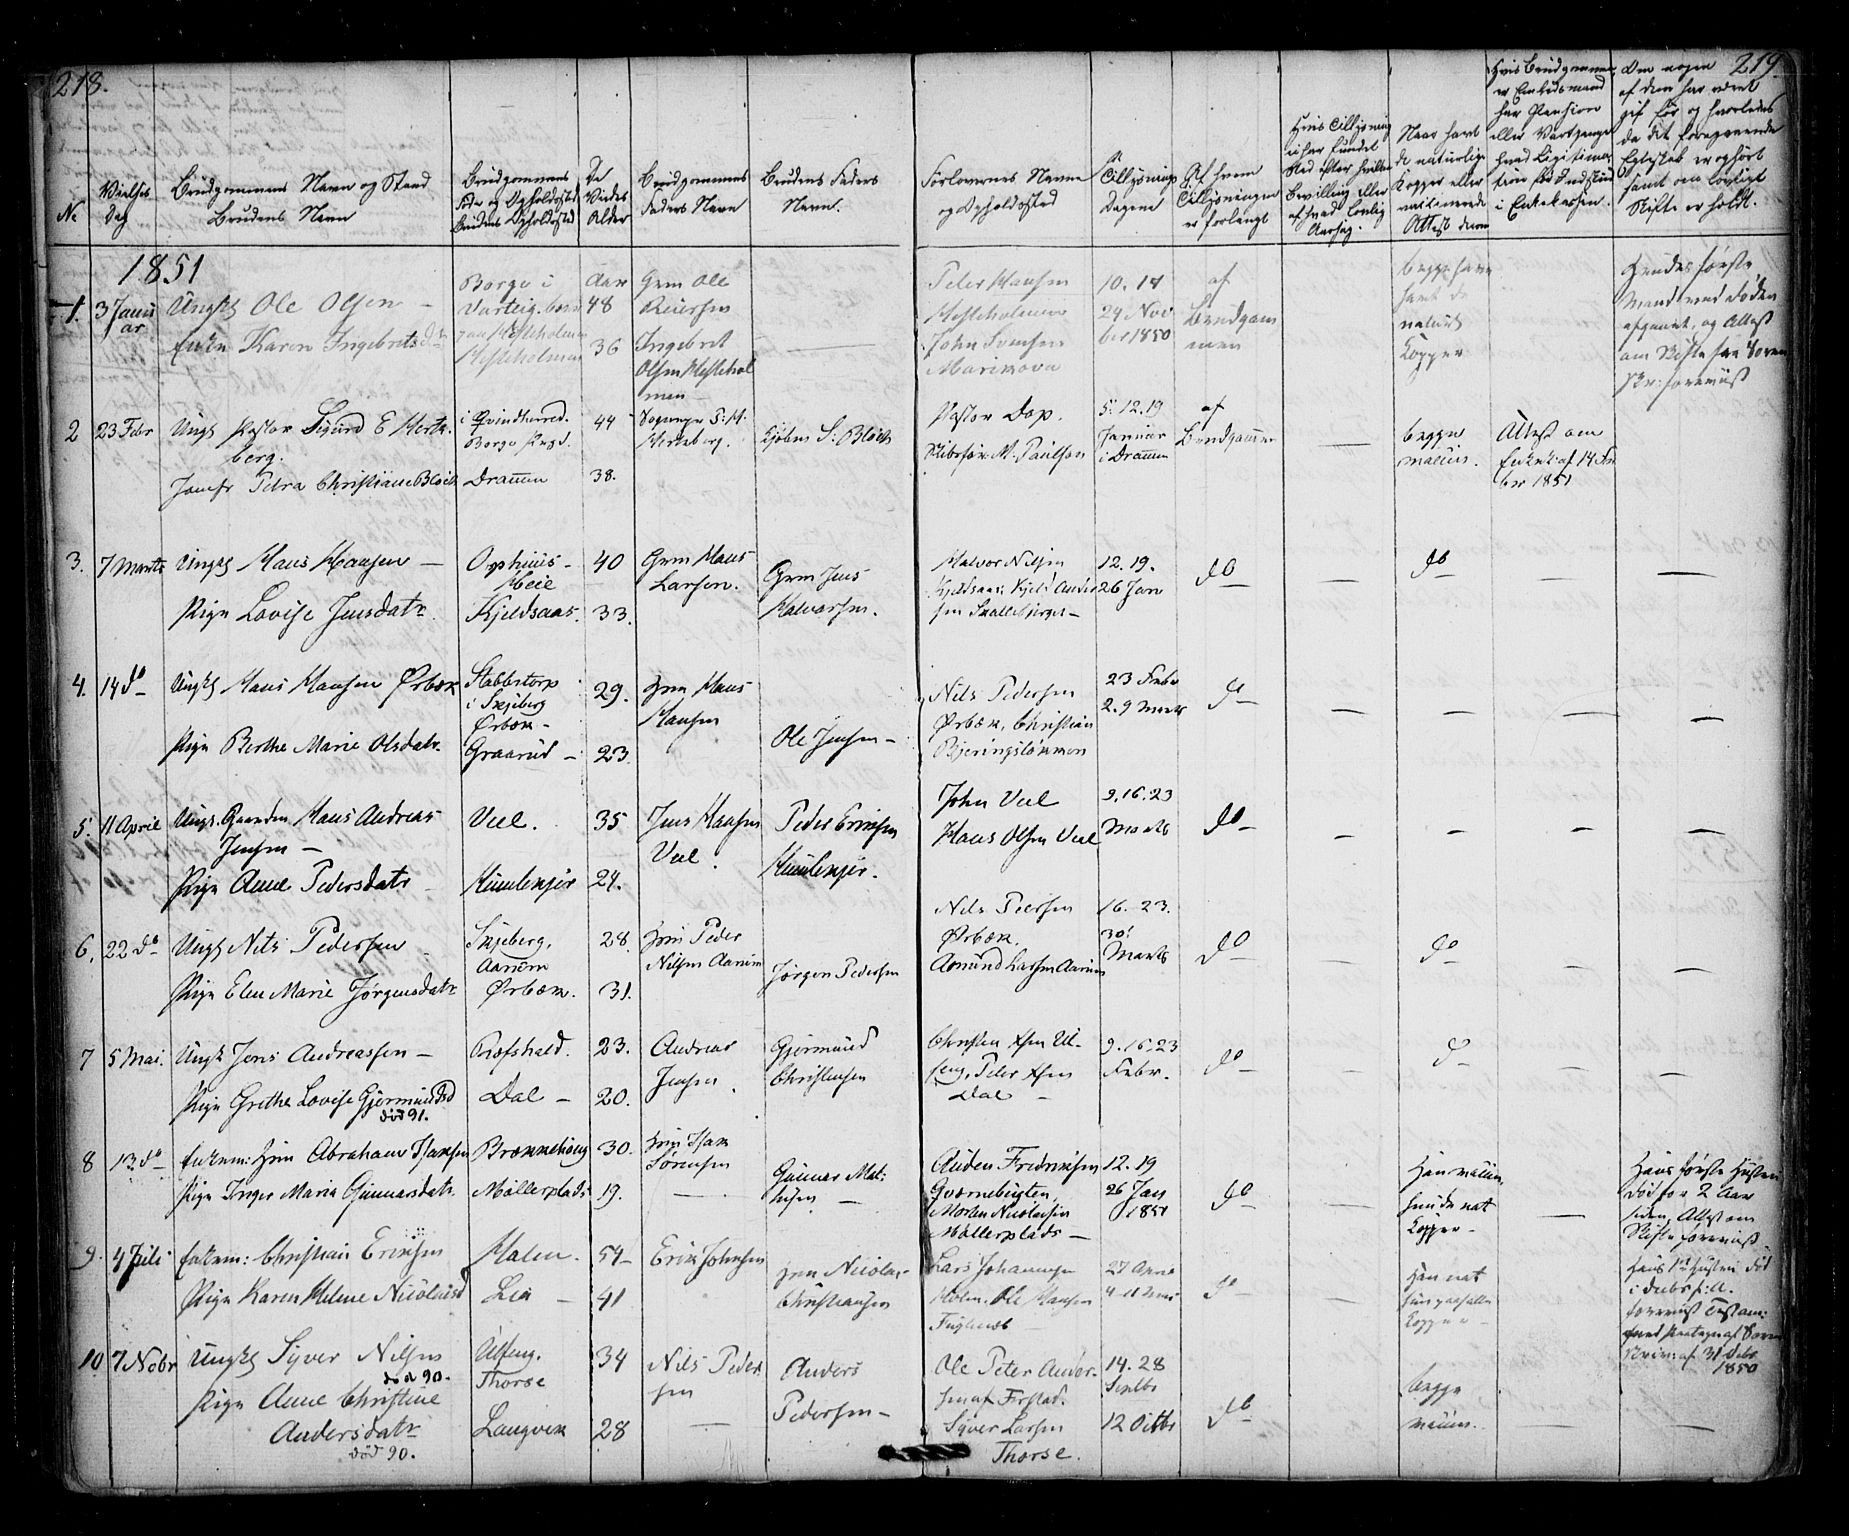 218.
219
No
Vielses Dag
Brudgommens Navn og Stand
Brudens Navn
Brudgommens
Føde og Opholdssted
Brudens Opholdssted
De
Viedes
Alder
Brudgommens
Faders Navn
Brudens Faders
Navn.
Forlovernes Navne
og Opholdssted
Tillysnings
Dagene
Af hvem
Tillysningen
er forlangt
Hvis Tillysning
ei har fundet
Sted efter hvilken
Bevilling eller
af hvad lovlig
Aarsag.
Naar havt
de naturlige
Kopper eller
vaccinerede
Attest derom
Hvis Brudgommen
er Embedsmand
har Pension
eller Vartpenge
hvad Legitima-
tion for Indskud
i Enkekassen.
Om nogen
af dem har været
gift før og hvorledes
da det foregaaende
Egteskab er ophørt
samt om lovligt
Skifte er holdt.
1851
1. 3 Janu
ar
Ungk Ole Olsen
Enke Karen Ingebretsd
Borge i
Varteig
Hesteholmen
Aar
48
36
Grm Ole
Reiersen
Ingebret
Olsen Hestehol
men
Peder Hansen
Hesteholmen
John Svensen
10. 17
24 Nov
ber 1850
af
Brudgom
men
begge have
havt de
naturl
Kopper
Hendes første
Mand ved Døden
afgaaet, og Attest
om Skifte fra Soren
skr: forevist
2 23 Febr
Ungk Pastor Sigurd E Hertz
berg.
Jomfr Petra Christiane Bloch
i Qvindherred.
Borge Præg.
Drammen
44
38.
Sognepr P: H:
Hertzberg.
S: Bloch
Pastor Dop.
Skibsfør. M. Paulsen
5. 12. 19
Januar
i Dramen
af
Brudgommen
begge
vaccin.
Attest om
Enkek: af 14 Fe
ber 1851
3. 7 Marts
Ungk Hans Hansen
Pige Lovise Jensdatr
Ophuus-
Heie
Kjeldsaas.
40
33.
Grm Hans
Larsen.
Grm Jens
Halvorsen.
Halvor Nilsen
Kjeldsaas, Kjeld Ander
sen Skallebjerget
12. 19.
26 Jan
do
do
4. 14 do
Ungk Hans Hansen Ørbæk
Pige Berthe Marie Olsdatr.
Stabbetorp
i Skjeberg
Ørbæk
Graarud
29.
23.
Hm Hans
Hansen
Ole Jensen
Nils Pedersen
Ørbæk, Christian
Bjeringsløkken
23 Febr
2. 9 Marts
do
5. 11 April
Ungk. Gaardm Hans Andreas
Jensen
Pige Anne Pedersdatr
Veel.
35
24.
Jens Hansen
Veel.
Peder Eriksen
John Veel
Hans Olsen Veel
9. 16. 23
Marts
do
6. 22 do
Ungk Nils Pedersen
Pige Elen Marie Jørgensdatr
Skjeberg,
Aarum
Ørbæk.
28.
31.
Hm Peder
Nilsen Aarum
Jørgen Pedersen
Nils Peersen
Ørbæk.
Asmund Larsen Aarum
16. 23.
30.
Marts
do
do
7 5 Mai.
Ungk Jens Andreassen
Pige Grethe Lovise Gjermundsd
død 91.
Ræfshald.
Dal
23.
20.
Andreas
Jensen
Gjermund
Christensen
Christen
Ul-
feng, Peter
Dal
9. 16. 23
Febr.
do
do
8 13 do
Enkem: Hm Abraham Isaksen
Pige Inger Maria Gunnarsdatr.
Brønnehaug
Møllerplads
30.
19.
Hm Isak
Sørensen
Gunnar Mat-
hisen
Auden Fredriksen
Gværnebugten,
Morten Nicolaisen
Møllerplads
12. 19
26 Jan
1851
do
Han vaccin,
hun de nat
Kopper
Hans første Hustru
død for 2 Aar
siden, Attest om
Skifte forevist
9. 4 Juli
Enkem: Christian Eriksen
Pige Karen Helene Nicolaisd
Holen.
Lia
54
41
Erik Johnsen
Hm Nicolai
Christiansen
Lars Johannesen
Holen. Ole Hansen
Fuglevik
27 April
4-11 Mai
do
Han nat
hun
Kopper
Hans Hustru død
forevist
af Soren
skriv af 31 Decbr
1850
10 7 Nobr
Ungk Syver Nilsen
død 90.
Pige Anne Christine
Andersdatr
død 90.
Ulfeng.
Thorse
Langvik
34
28
Nils Peder
sen
Anders
Pedersen
Ole Peter Ander-
sen af Firstad.
Syver Larsen
Thorse.
14. 28
Septbr
12 Octbr
do
begge
vaccin.